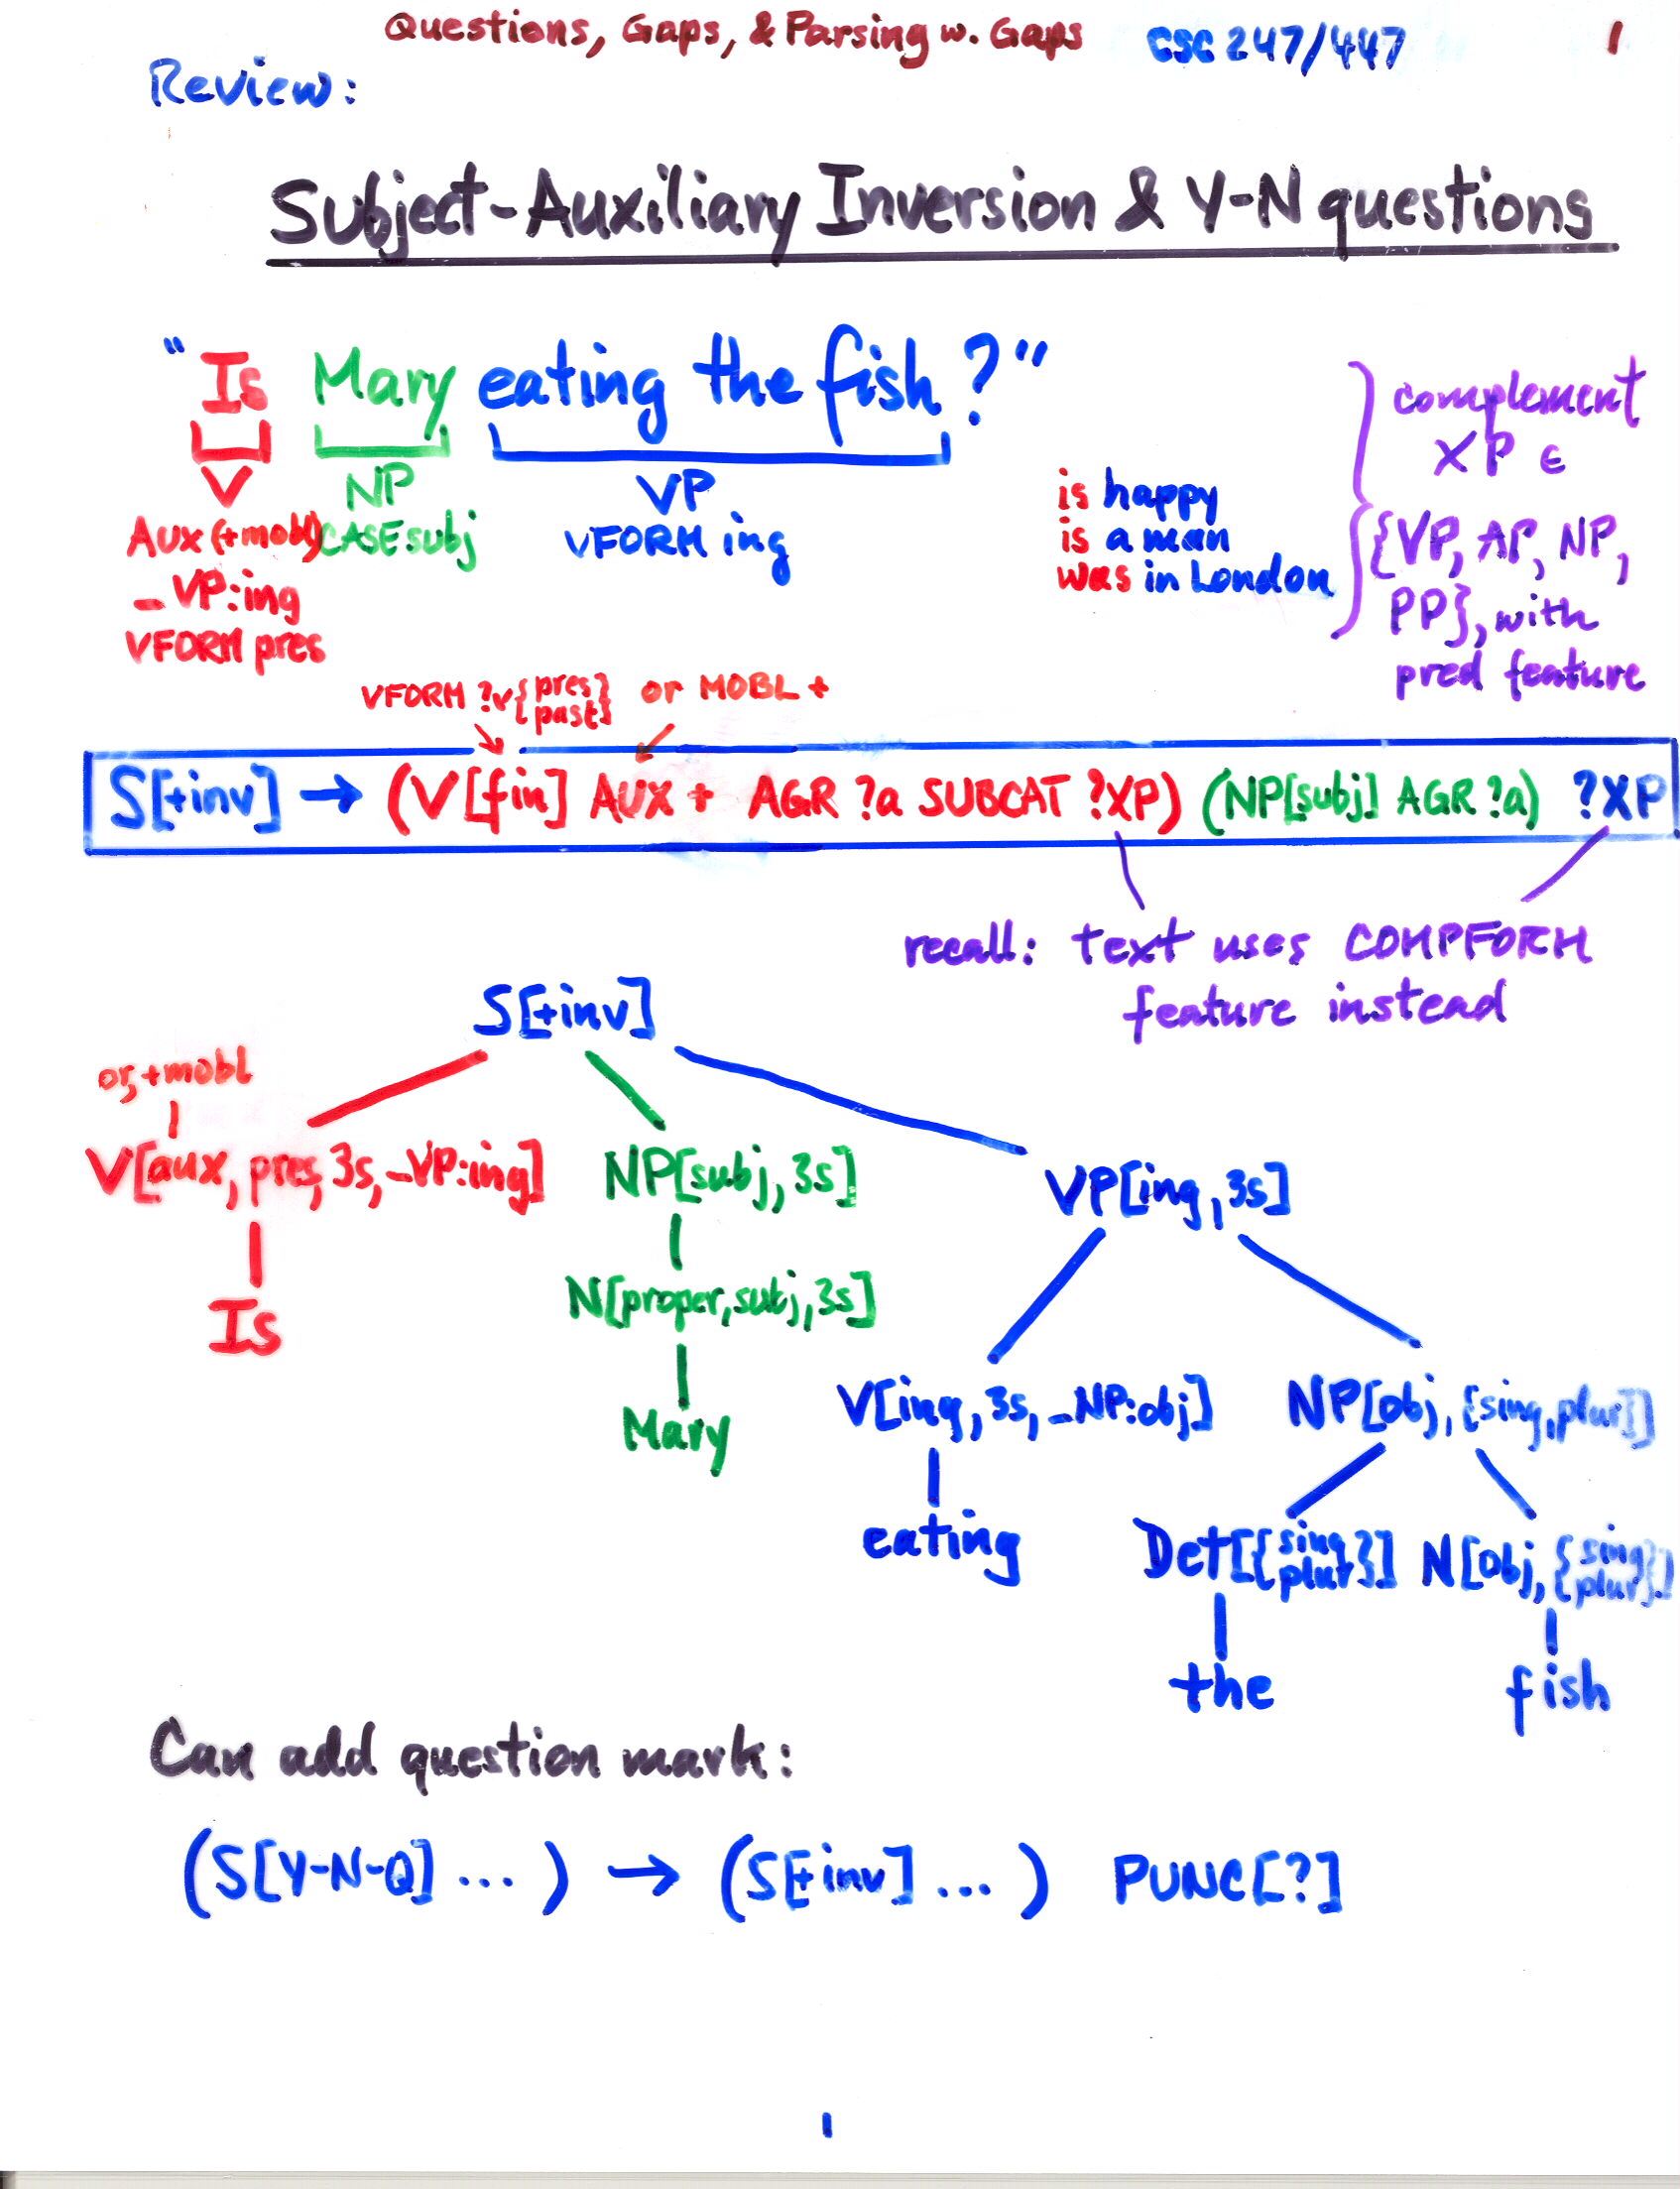 Questions, Gaps, & Parsing w. Gaps CSC 247/447 1
Review:
Subject-Auxiliary Inversion & Y-N questions
"Is Mary eating the fish?"
V NP VP
Aux (+mobl) CASE subj VFORM ing
_VP:ing
VFORM pres
is happy
is a man
was in London
complement
XP ∈
{VP, AP, NP,
PP}, with
pred feature
VFORM ?v{pres past} or MOBL +
S[+inv] → (V[fin] AUX + AGR ?a SUBCAT ?XP) (NP[subj] AGR ?a) ?XP
recall: text uses COMPFORM
feature instead
S[+inv]
or, +mobl
V[aux, pres, 3s, _VP:ing] NP[subj, 3s] VP[ing, 3s]
Is N[proper, subj, 3s]
Mary
V[ing, 3s, _NP:obj] NP[obj, {sing, plur}]
eating Det[{sing plur}] N[obj, {sing plur}]
the fish
Can add question mark:
(S[Y-N-Q] ... ) → (S[+inv] ... ) PUNC[?]
1